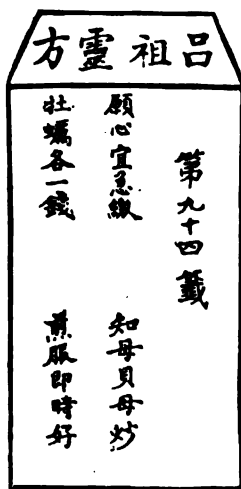 呂祖靈方
第九十四籤
願心宜急繳　知母貝母炒
牡蠣各一錢　煎服即時好